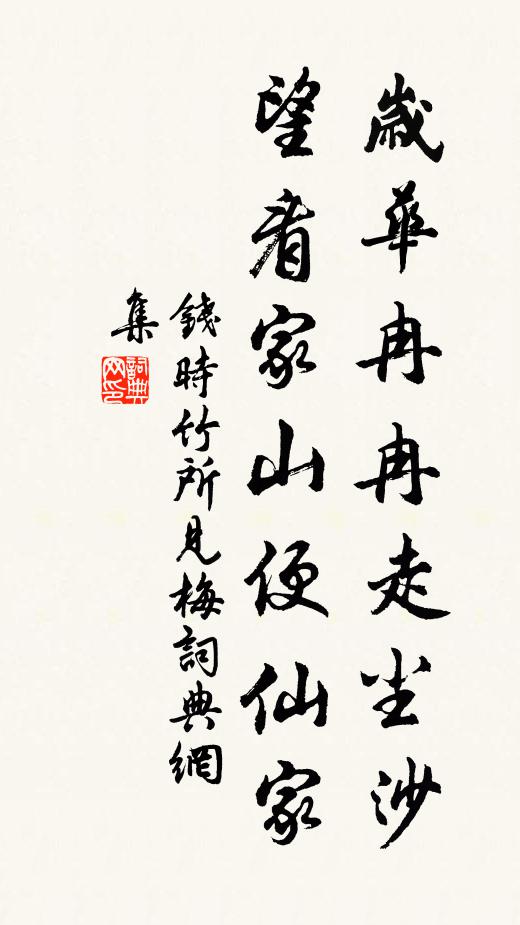 歲華冉冉走尘沙
望看家山便仙家
錢時竹所見梅詞典網
集
詞典网印